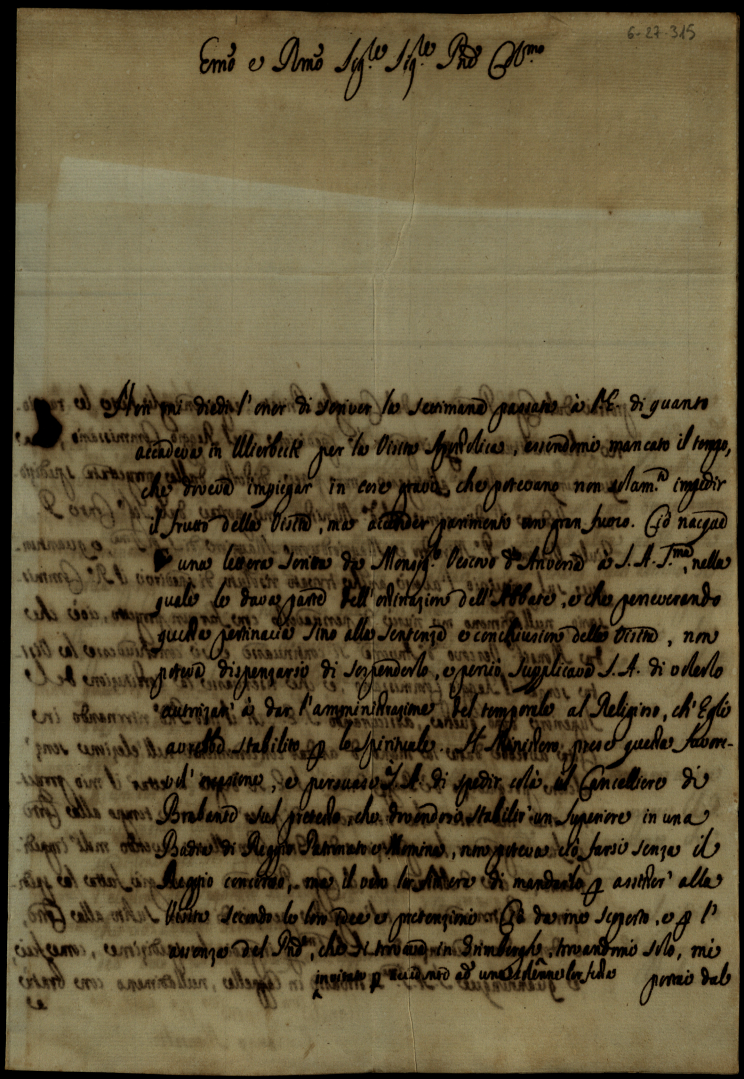 6-27-315
Emõ e Rmõ Sig.re Sig.re Pnẽ Col.mo
Non mi diedi l'onor di scriver la settimana passata à V.E. di quanto
accadeva in per la Visita Apostolica, essendomi mancato il tempo,
che doveva impiegar in cose gravi, che potevano non solam.te impedir
il frutto della Visita, ma accender parimente un gran fuoco. Ciò nacque
una lettera scritta da Monsig.r Vescovo d'Anversa à S.A.S.ma, nella
quale le dava parte dell'ostinazion dell'Abbate, e che perseverando
questa pertinacia sino alla sentenza e conclusion della Visita, non
poteva dispensarsi di sospenderlo, e perciò supplicava S.A. di volerlo
autorizar à dar l'amministrazione del temporale al Religioso, ch'Egli
avrebbe stabilito p lo spirituale. Il Ministero prese questa favore-
vol' occasione, e persuase S.A. di spedir colà il Cancelliere di
Brabante sul pretesto, che dovendosi stabilir un Superiore in una
Badia di Reggio Patronato e Nomina, non poteva ciò farsi senza il
Reggio concorso, ma il vero era di mandarlo p assister' alla
Visita secondo le loro idee e pretenzioni. Ciò da me scoperto, e p l'
assenza del che si trovava in Grimberghe, trovandomi solo, mi
portai dal